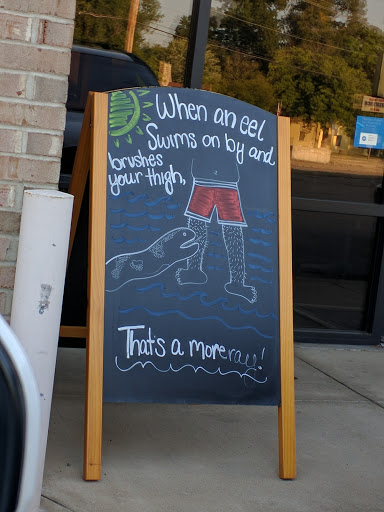 When an eel
Swims on by and
brushes
your thigh,
Thats a moreray!